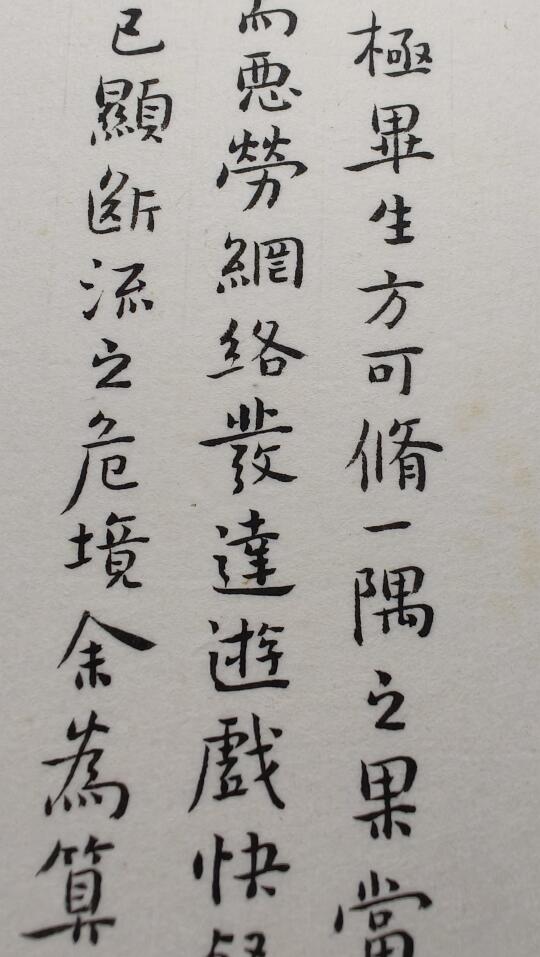 極畢生方可脩一隅之果當
而惡勞網絡發達遊戲快
已顯斷流之危境余為算